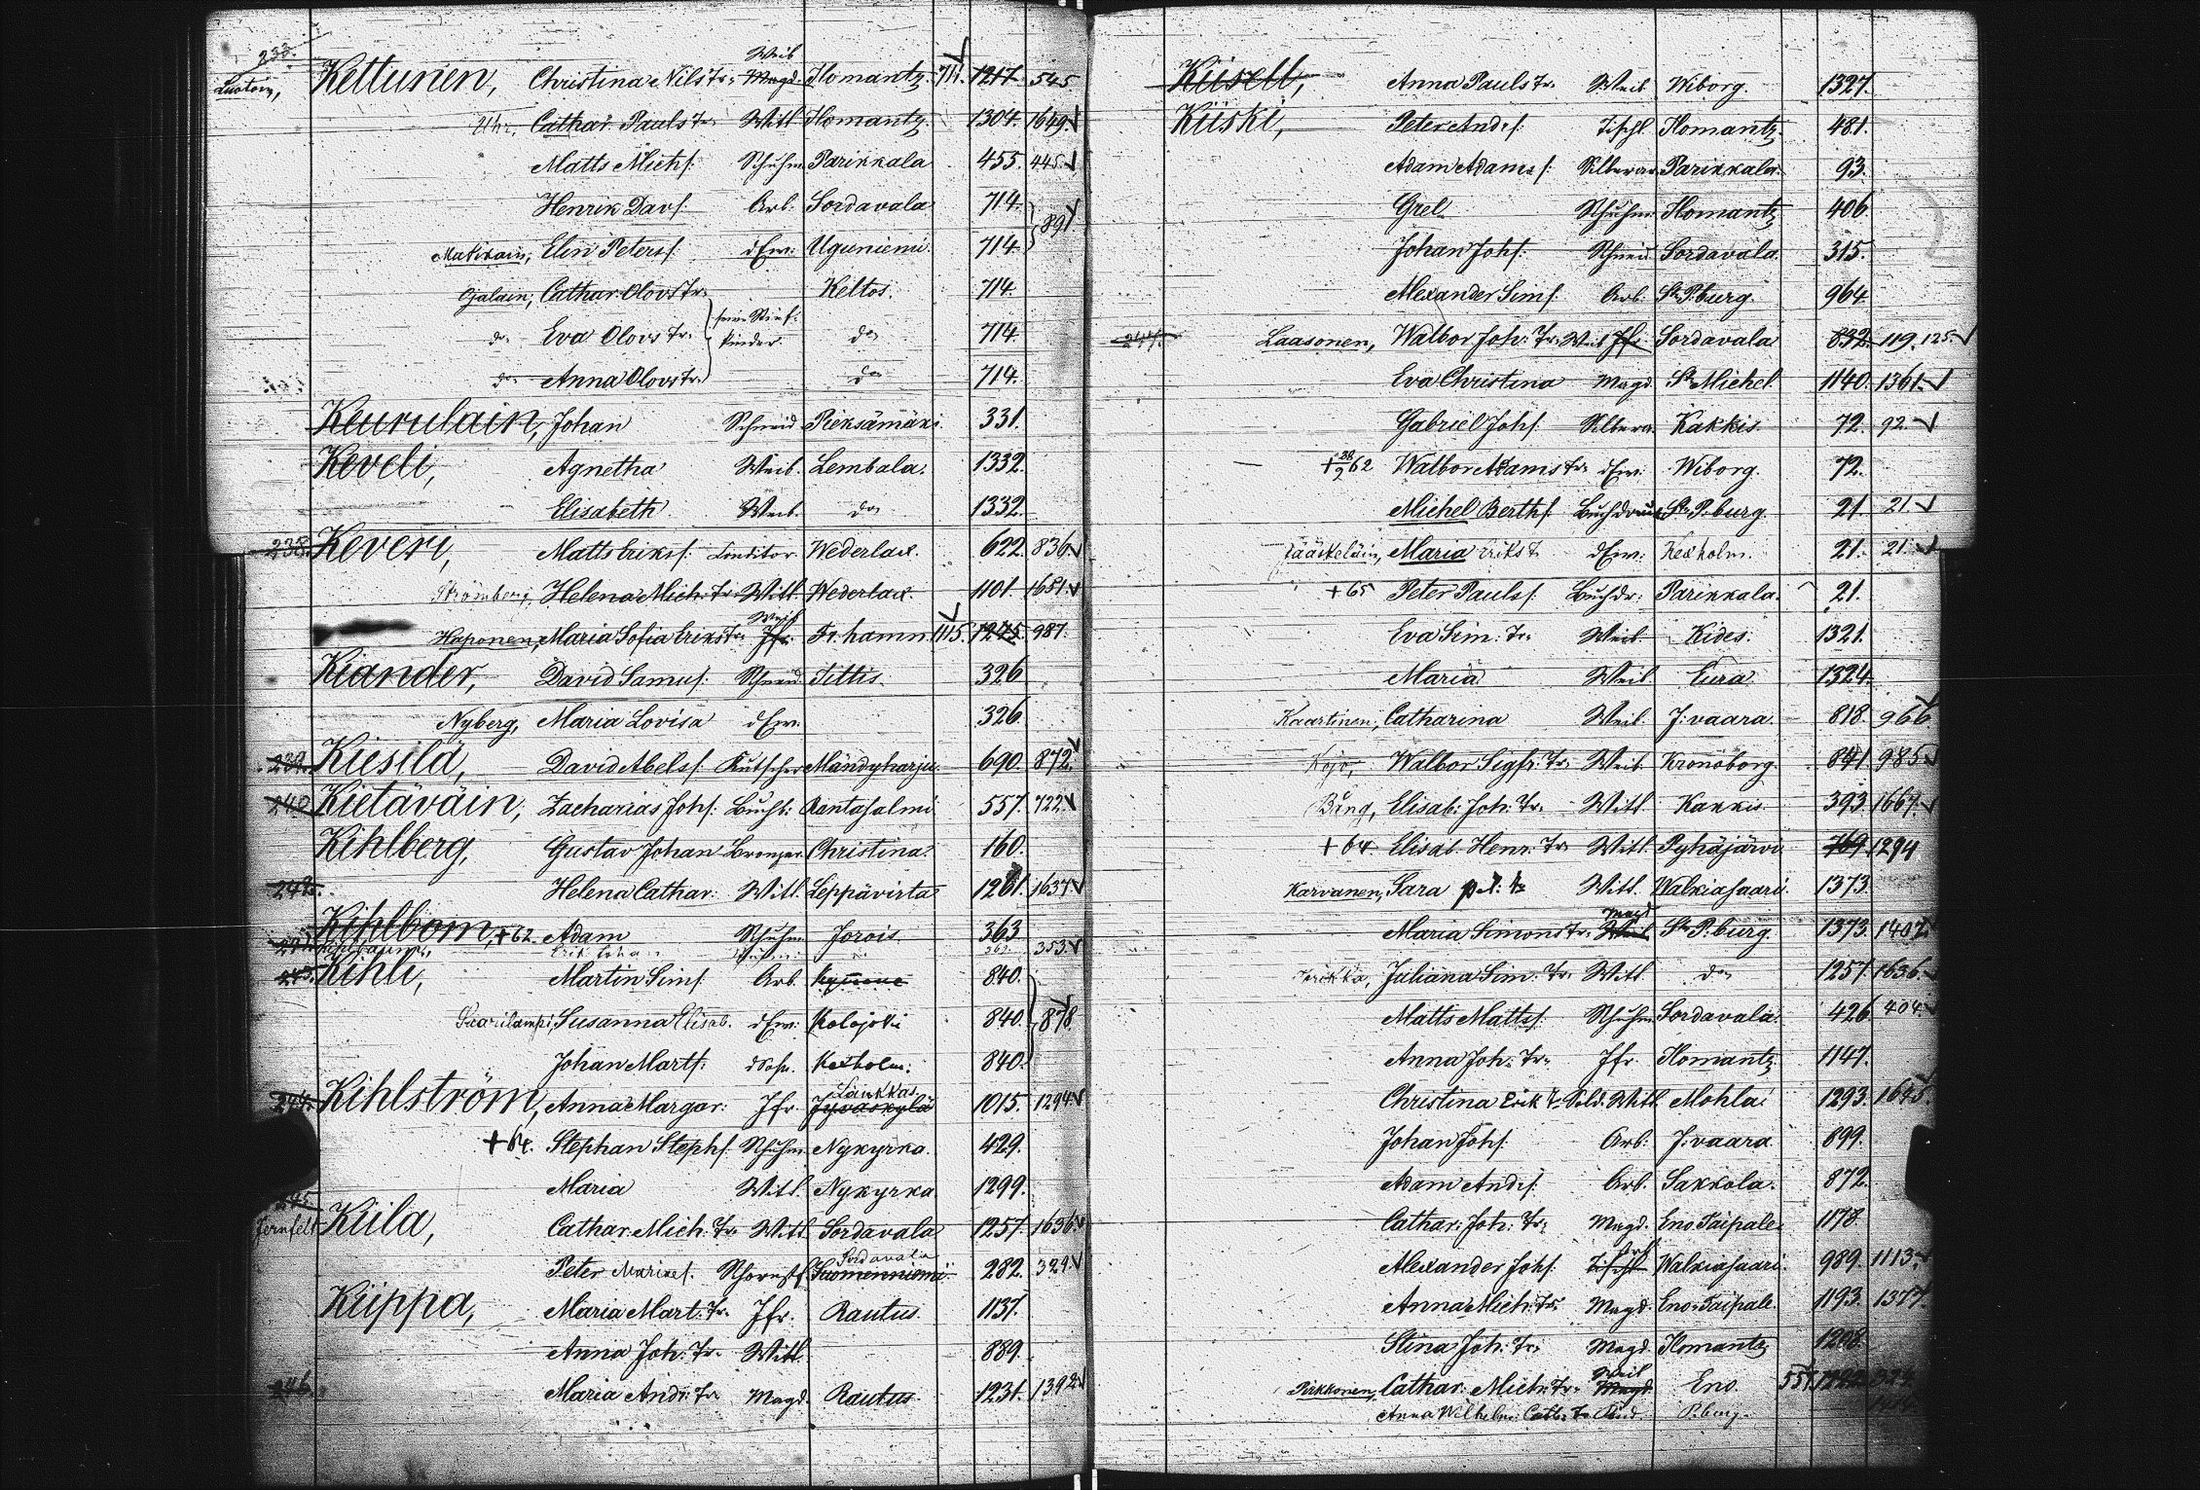 233.
Kettunen, Christina Nils Tr. Weib Magd. Ilomantz. 711. 1217. 545
Cathar. Pauls Tr. Witl. Ilomantz. 1304. 1649.
Matts Michs. Schuhm. Parikkala 455. 445.
Henrik Davs. Arb. Sordavala 714. 891
Matikain, Elin Peters. dEw: Uguniemi. 714.
Cathar. Olovs Tr. Keltos. 714.
do Eva Olovs Tr. Kinder. do 714.
do Anna Olovs Tr. do 714.
Keurulain, Johan Schneid. Pieksämäki 331.
Keveli, Agnetha Weib. Lembala. 1332.
Elisabeth Weib. do 1332.
238. Keveri, Matts Eriks. Conditor. Wederlax. 622. 836.
Strömberg, Helena Mich. Tr. Witl. Wederlax. 1101. 1651.
Haponen, Maria Sofia Eriks Tr. Weib Jfr. Fr. hamn. 1115. 1275. 987.
Kiander, David Samus. Schneid. Tittis. 326
Nyberg, Maria Lovisa dEw: 326.
239. Kiesilä, David Abels. Kutscher Mändyharju. 690. 872.
240. Kietäväin, Zacharias Johs. Buchb: Rantasalmi 557. 722.
Kihlberg, Gustav Johan Bronzar. Christina. 160.
242. Helena Cathar. Witl. Leppävirta 1261. 1637.
Kihlbom, +62. Adam Schuhm. Jorois. 363
353.
243. Kihli, Martin Sims. Arb. 840.
Susanna Elisab. dEw: Kolojoki 840. 878.
Johan Marts. dSoh. Kexholm. 840.
244. Kihlström, Anna Margar: Jfr. Laukkas Jyväskylä 1015. 1294.
+64. Stephan Stephs. Schuhm. Nykyrka. 429.
Maria Witl. Nykyrka 1299.
245.
Jernfelt Kiila, Cathar. Mich. Tr. Witl. Sordavala 1257. 1636.
Peter Schornstf. Sordavala Suomenniemi 282. 329.
Kiippa, Maria Mart. Tr. Jfr. Rautus. 1137.
Anna Joh. Tr. Witl. 889.
246. Maria Andr. Tr. Magd. Rautus. 1231. 1392.
Kiisell, Anna Pauls Tr. Weib Wiborg. 1327.
Kiiski, Peter Ands. Tischl. Ilomantz. 481.
Adam Adams. Silberar. Parikkala. 93.
Grel Schuhm. Ilomantz 406.
Johan Johs. Schneid. Sordavala. 315.
Alexander Sims. Arb. St. P.burg. 964.
247. Laasonen, Walbor Joh. Tr. Weib Jfr. Sordavala 832. 119. 125.
Eva Christina Magd. St. Michel. 1140. 1361.
Gabriel Johs. Silberar. Kakkis 72. 92.
+ 62 Walbor Adams Tr. dEw: Wiborg. 72.
Michel Berths. Buchdruck. St. P.burg. 21. 21.
Jääskeläin, Maria Eriks T. dEw: Kexholm. 21. 21.
+65 Peter Pauls. Buchdr: Parikkala. 21.
Eva Sim. Tr. Weib. Kides. 1321.
Maria Weib. Eura. 1324.
Kaartinen, Catharina Weib. J:vaara. 818. 966.
Kojo, Walbor Sigfr. Tr. Weib. Kronoborg. 841. 985.
Bång, Elisab: Joh. Tr. Witl. Kakkis. 393. 1667.
+64. Elisab. Henr. Tr. Witl. Pyhäjärvi 769. 1294
Karvanen, Sara Witl. Walkiasaari. 1373.
Maria Simons Tr. Magd Weib St. P.burg. 1373. 1407.
Juliana Sim. Tr. Witl. do 1257. 1636.
Matts Matts. Schuhm. Sordavala. 426. 404.
Anna Joh. Tr. Jfr. Ilomantz 1147.
Christina Erik T. Sold. Witl. Mohla 1293. 1645.
Johan Johs. Arb: J:vaara. 899.
Adam Ands. Arb. Sakkola. 872.
Cathar: Joh: Tr: Magd. Eno Taipale. 1178.
Alexander Johs. Tischl. Walkiasaari. 989. 1113.
Anna Mich: Tr. Magd. Eno Taipale. 1193. 1377.
Stina Joh: Tr: Magd. Ilomantz 1208.
Pirkkonen, Cathar. Mich: Tr. Weib Magd. Eno.
Anna Wilhelm: Cath: T. P.burg.